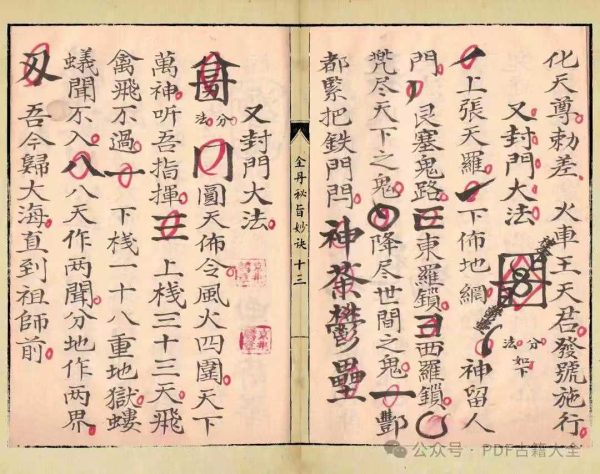 化天尊勅差 火車王天君發號施行
又封門大法 分法如下
上張天羅 下佈地網 神留人
門 艮塞鬼路 東羅鎖 西羅鎖
咒尽天下之鬼 降尽世間之鬼 酆
都緊把鉄門閂 神荼鬱壘
金丹秘旨妙诀 十三
又封門大法
分法 圓天佈令風火四圍天下
萬神听吾指揮 三 上栈三十三天飛
禽飛不過 一 下栈一十八重地獄螻
蟻聞不入 八 八天作两聞分地作两界
吾今歸大海直到祖師前
公众号·PDF古籍大全